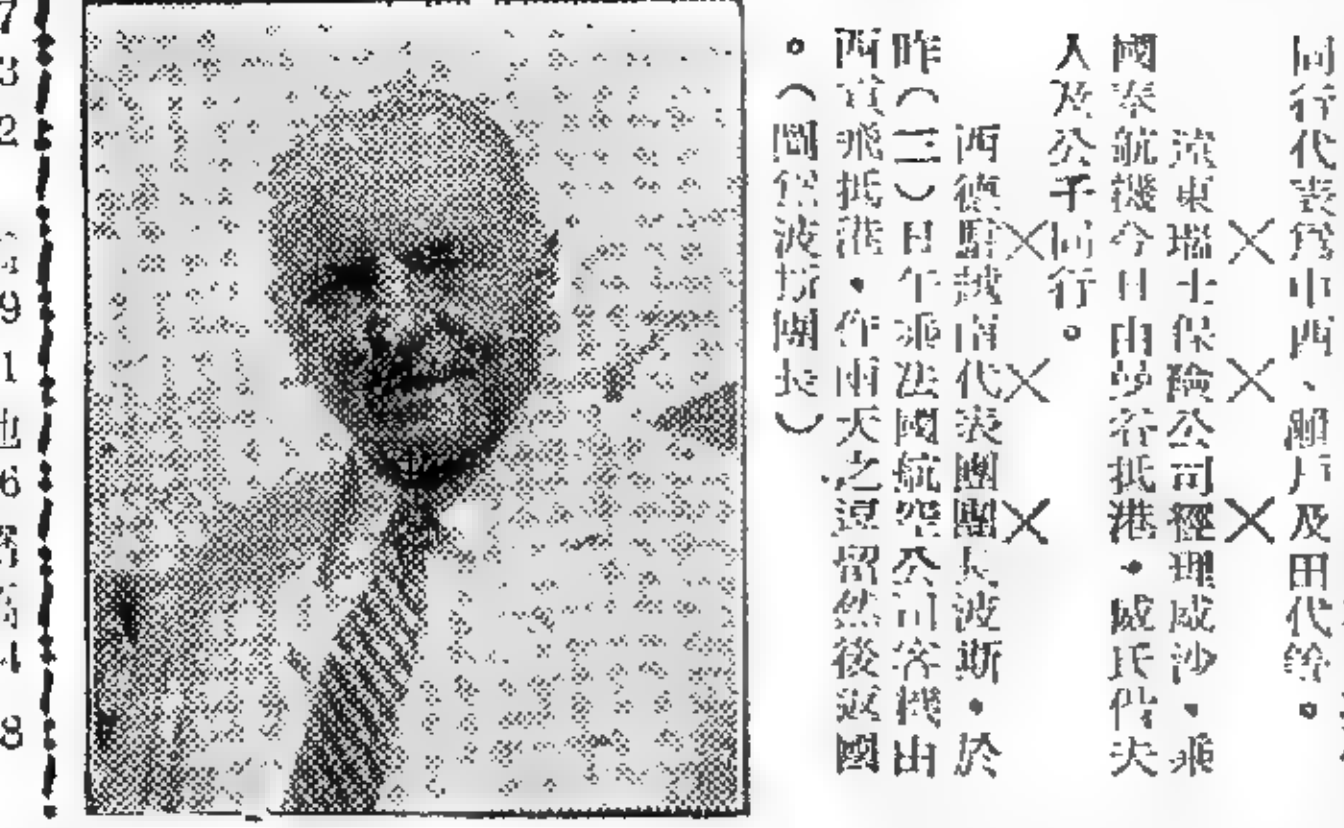 同行代表爲中西、瀨戶及田代等。
×××
遠東瑞士保險公司經理威沙，乘
國泰航機今日由曼谷抵港，威氏偕夫
人及公子同行。
×××
西德駐越南代表團團長波斯，於
昨（三）日午乘法國航空公司客機由
西貢飛抵港，作兩天之逗留然後返國
。（圖爲波斯團長）
7
3
2
9
1
也
6
4
8